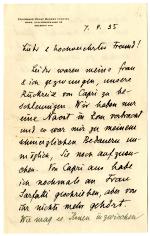 7. 9. 35
Lieber & hochverehrter Freund!
Leider waren meine Frau
& ich gezwungen, unsere
Rückreise von Capri zu be-
schleunigen. Wir haben nur
eine Nacht in Rom verbracht
und es war mir zu meinem
Bedauern un-
möglich, Sie noch aufzusu-
chen. Von Capri aus hab
ich nochmals an
Sarfatti geschrieben, aber von
ihr nichts mehr gehört.
Wie mag es Ihnen inzwischen